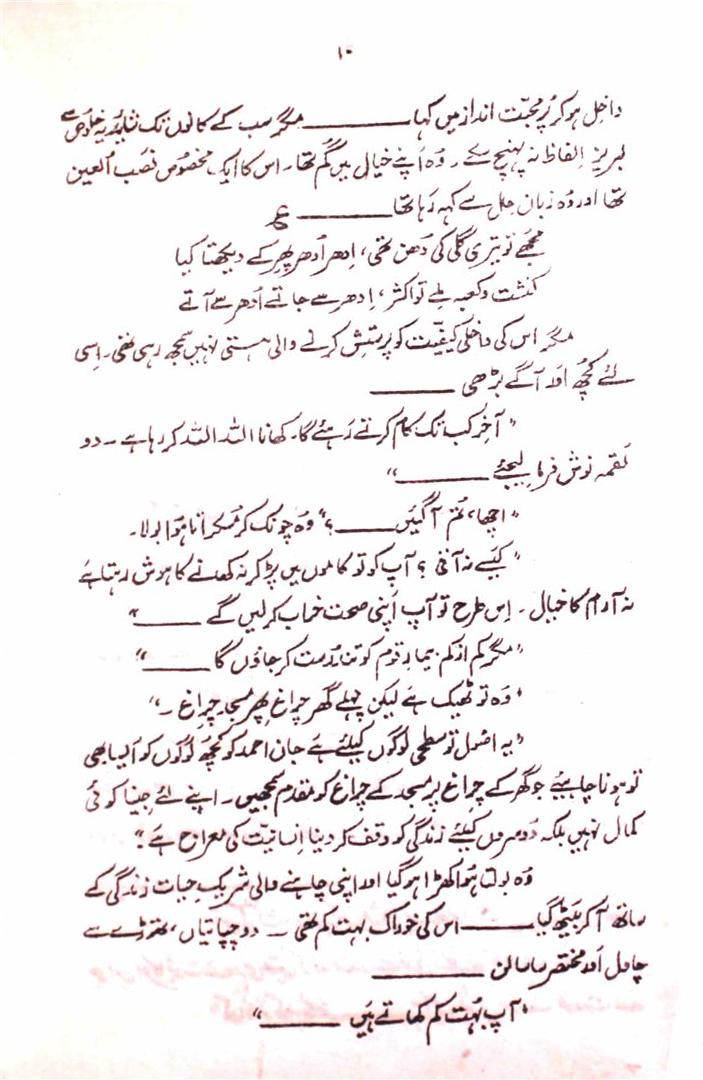 ۱۰
داخل ہو کر پُر محبّت انداز میں کہا ــــــــــ مگر سب کے کانوں تک شاید یہ خلوص سے
لبریز الفاظ نہ پہنچ سکے ۔ وُہ اَپنے خیال میں گُم تھا ۔ اس کا ایک مخصوص نصب اُلعین
تھا اور وُہ زبان حال سے کہہ رَہا تھا ــــــــــ ع
مجھے تو تیری گلی کی دُھن تھی ، اِدھر اُدھر پھر کے دیکھتا کیا
کنشت و کعبہ ملے تو اکثر ، اِدھر سے جاتے اُدھر سے آتے
مگر اس کی داخلی کیفیّت کو پرستش کرنے والی ہستی نہیں سمجھ رہی تھی ۔ اِسی
لئے کُچھ اور آگے بڑھی ــــــــــ
" آخر کب تک کام کرتے رَہئے گا ۔ کھانا اللہ اللہ کر رہا ہے ۔ دو
لقمہ نوش فرما لیجئے ــــــــــ "
" اچھا ، تُم آ گئیں ــــــــــ ؟" وُہ چونک کر مُسکراتا ہُوا بولا ۔
" کیَسے نہ آتی ؟ آپ کو تو کاموں میں پڑ کر نہ کھانے کا ہوش رہتا ہے
نہ آرام کا خیال ۔ اِس طرح تو آپ اَپنی صحت خراب کر لیں گے ــــــــــ "
" مگر کم از کم بیمار قوم کو تندرُست کر جاؤں گا ــــــــــ "
" وُہ تو ٹھیک ہے لیکن پہلے گھر چراغ پھر مسجد چراغ ۔ "
" یہ اصُول تو سطحی لوگوں کیلئے ہے جان احمد کو کچُھ لوگوں کو اَیسا بھی
تو ہونا چاہیئے جو گھر کے چراغ پر مسجد کے چراغ کو مقدم سمجھیں ۔ اپنے لئے جینا کوئی
کمال نہیں بلکہ دُوسروں کیلئے زندگی کو وقف کر دینا اِنسانیّت کی معراج ہے ۔ "
وُہ بولتا ہُوا کھڑا ہو گیا اور اپنی چاہنے والی شریکِ حیات زندگی کے
ساتھ آ کر بَیٹھ گیا ــــــــــ اس کی خوراک بہت کم تھی ۔ دو چپاتیاں ، تھوڑے سے
چاول اَور مختصر سا سالن ــــــــــ
" آپ بہُت کم کھاتے ہیَں ــــــــــ "